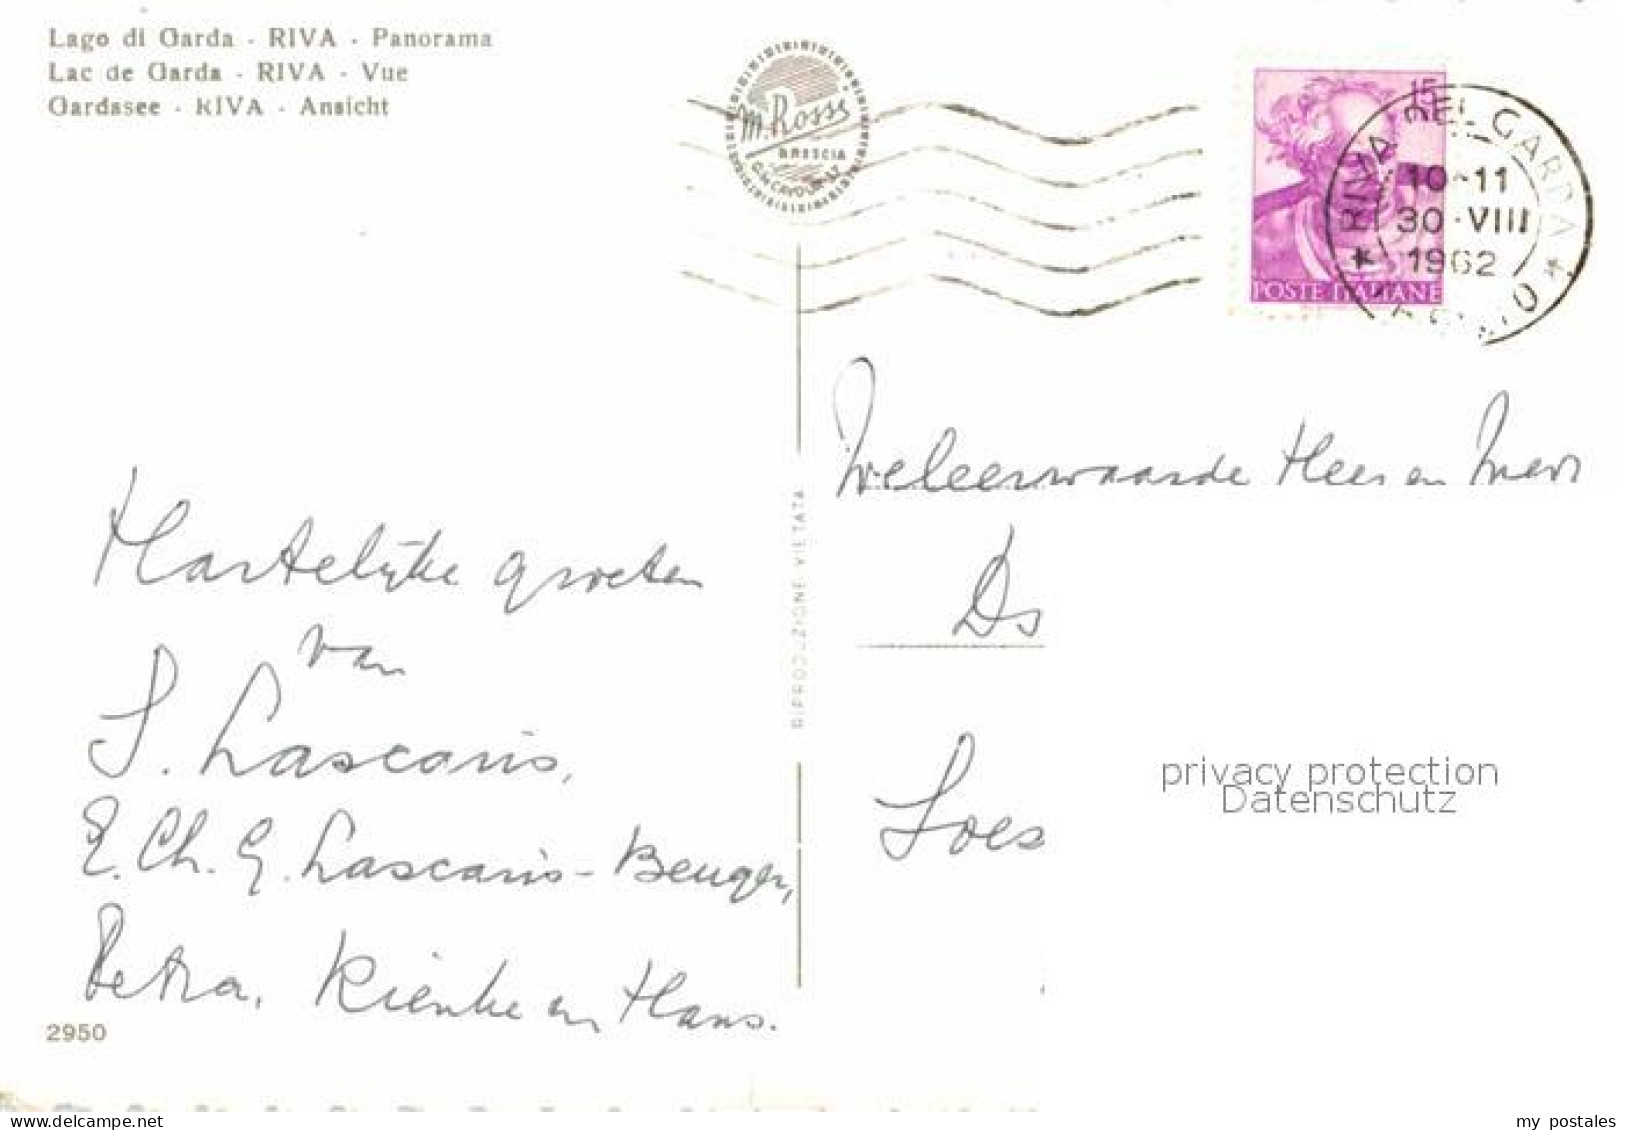 Lago di Garda - RIVA - Panorama
Lac de Garda - RIVA - Vue
Gardasee - RIVA - Ansicht
M. Rossi
BRESCIA
15
POSTE ITALIANE
RIVA DEL GARDA
10-11
30·VIII
1962
Weleerwaarde Heer en Mevr
Ds
Soes
Hartelijke groeten
van
S. Lascaris,
E. Ch. G. Lascaris - Beuger,
Petra, Rienke en Hans.
2950
RIPRODUZIONE VIETATA
privacy protection
Datenschutz
www.delcampe.net
my_postales